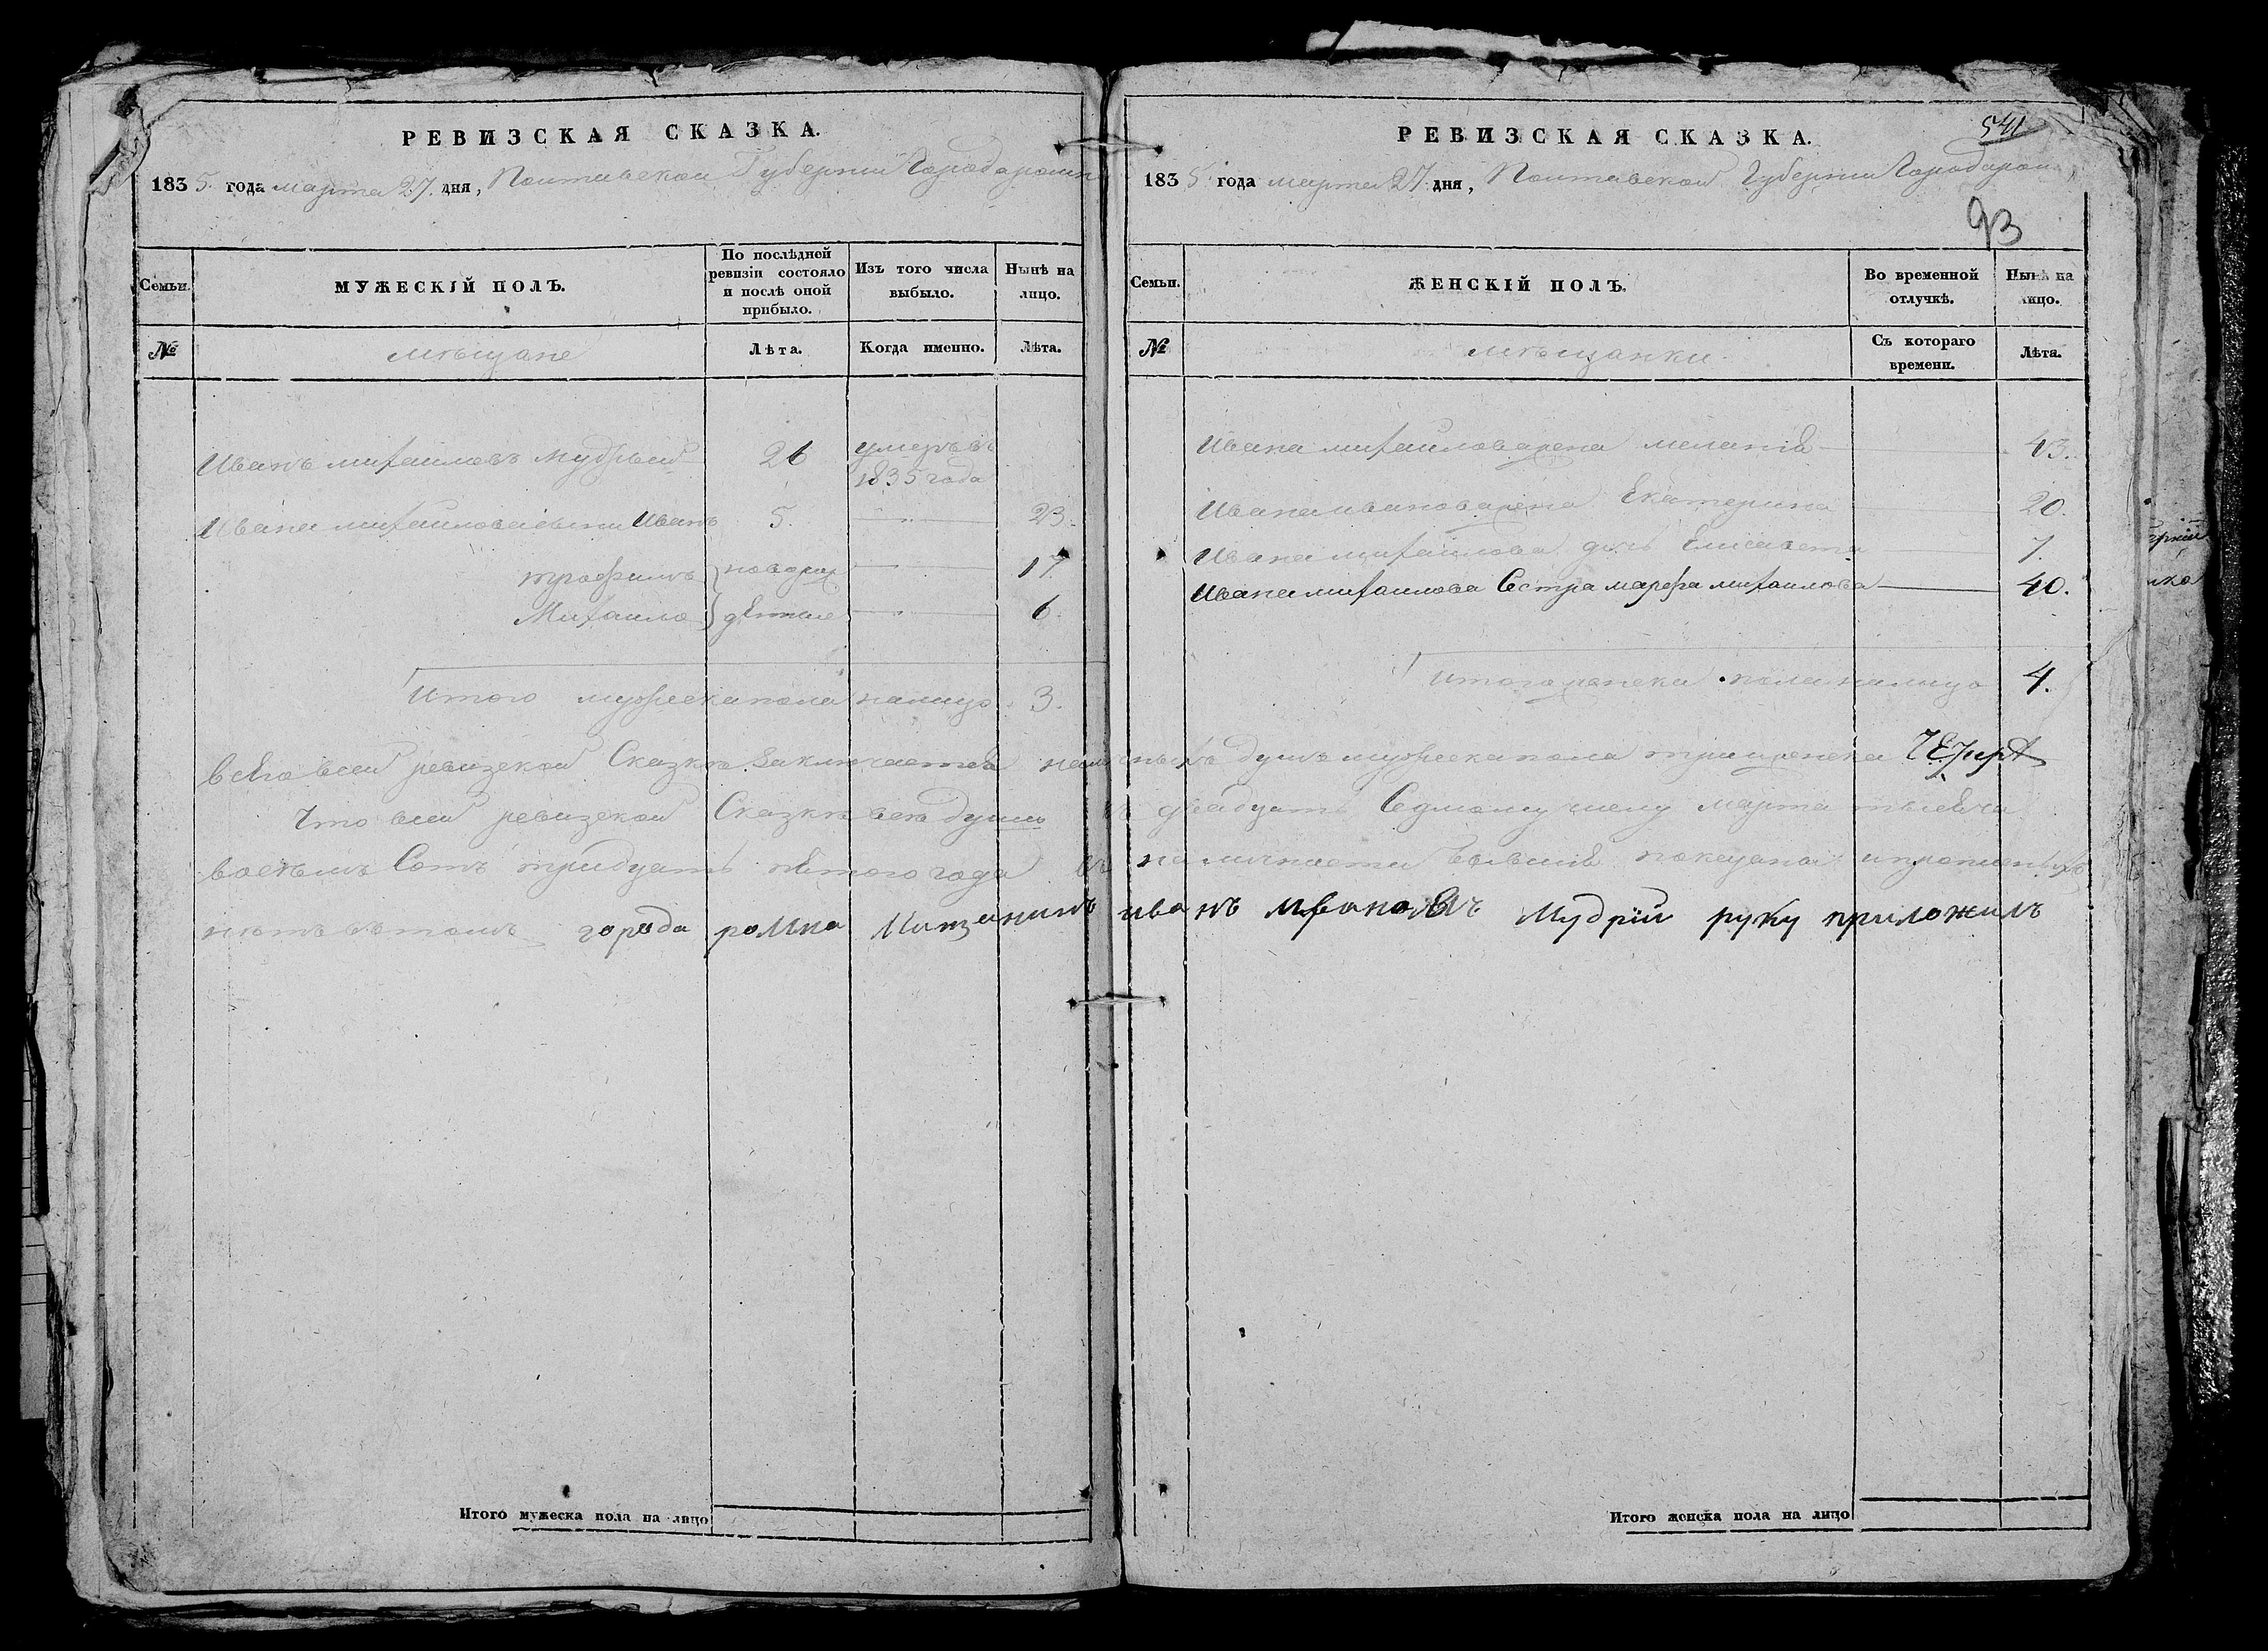 РЕВИЗСКАЯ СКАЗКА.
1835. года марта 27. дня, Полтавской Губернии Города Ромна
Семьи.
МУЖЕСКІЙ ПОЛЪ.
По послѣдней ревизіи состояло и послѣ оной прибыло.
Изъ того числа выбыло.
Нынѣ на лицо.
№
мѣщане
Лѣта.
Когда именно.
Лѣта.
Иванъ михаиловъ мудрый 26 умеръ въ 1835 года
Ивана михаилова сыны Иванъ 5. 23.
трофимъ новорож 17.
Михаило дѣнные 6.
Итого мужеска пола налицо 3.
Итого мужеска пола на лицо
РЕВИЗСКАЯ СКАЗКА.
541
1835 года марта 27 дня, Полтавской Губернии Города ромна,
93
Семьи.
ЖЕНСКІЙ ПОЛЪ.
Во временной отлучкѣ.
Нынѣ на лицо.
№
мѣщанки
Съ котораго времени.
Лѣта.
Ивана михаилова жена меланія 43.
Ивана иванова жена Екатерина 20.
Ивана михаилова дочь Елисавета 7.
Ивана михаилова Сестра марфа михаилова 40.
Итого женска пола налицо 4.
всего всей ревизской Сказкѣ заключается наличныхъ душъ мужеска пола три женска
Что всей ревизской Сказкѣ все души къ двадцать Седмому числу марта тысяча
восемъ Сотъ тридцать пятого года въ наличности бывшія показаны и прописныхъ
нетъ въ томъ города ромна Мищанинъ иванъ ивановъ Мудрій руку приложилъ
Итого женска пола на лицо